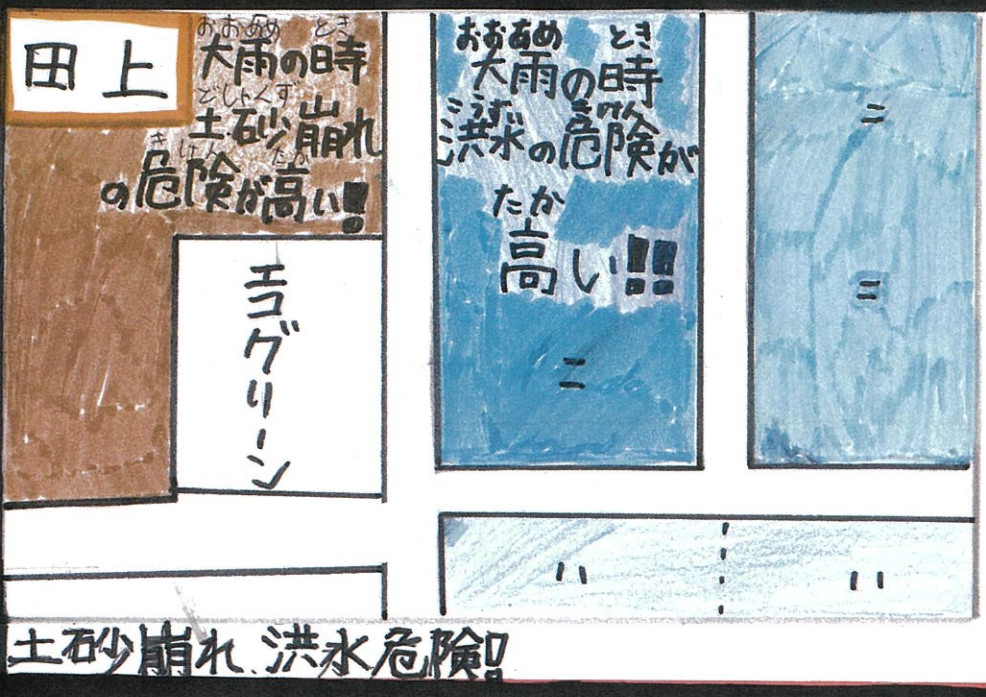 田上
おおあめ とき
大雨の時
どしゃくず
土砂崩れ
きけん たか
の危険が高い!!
エコグリーン
おおあめ とき
大雨の時
こうずい きけん
洪水の危険が
たか
高い!!
二
二
三
八
八
土砂崩れ、洪水危険!!